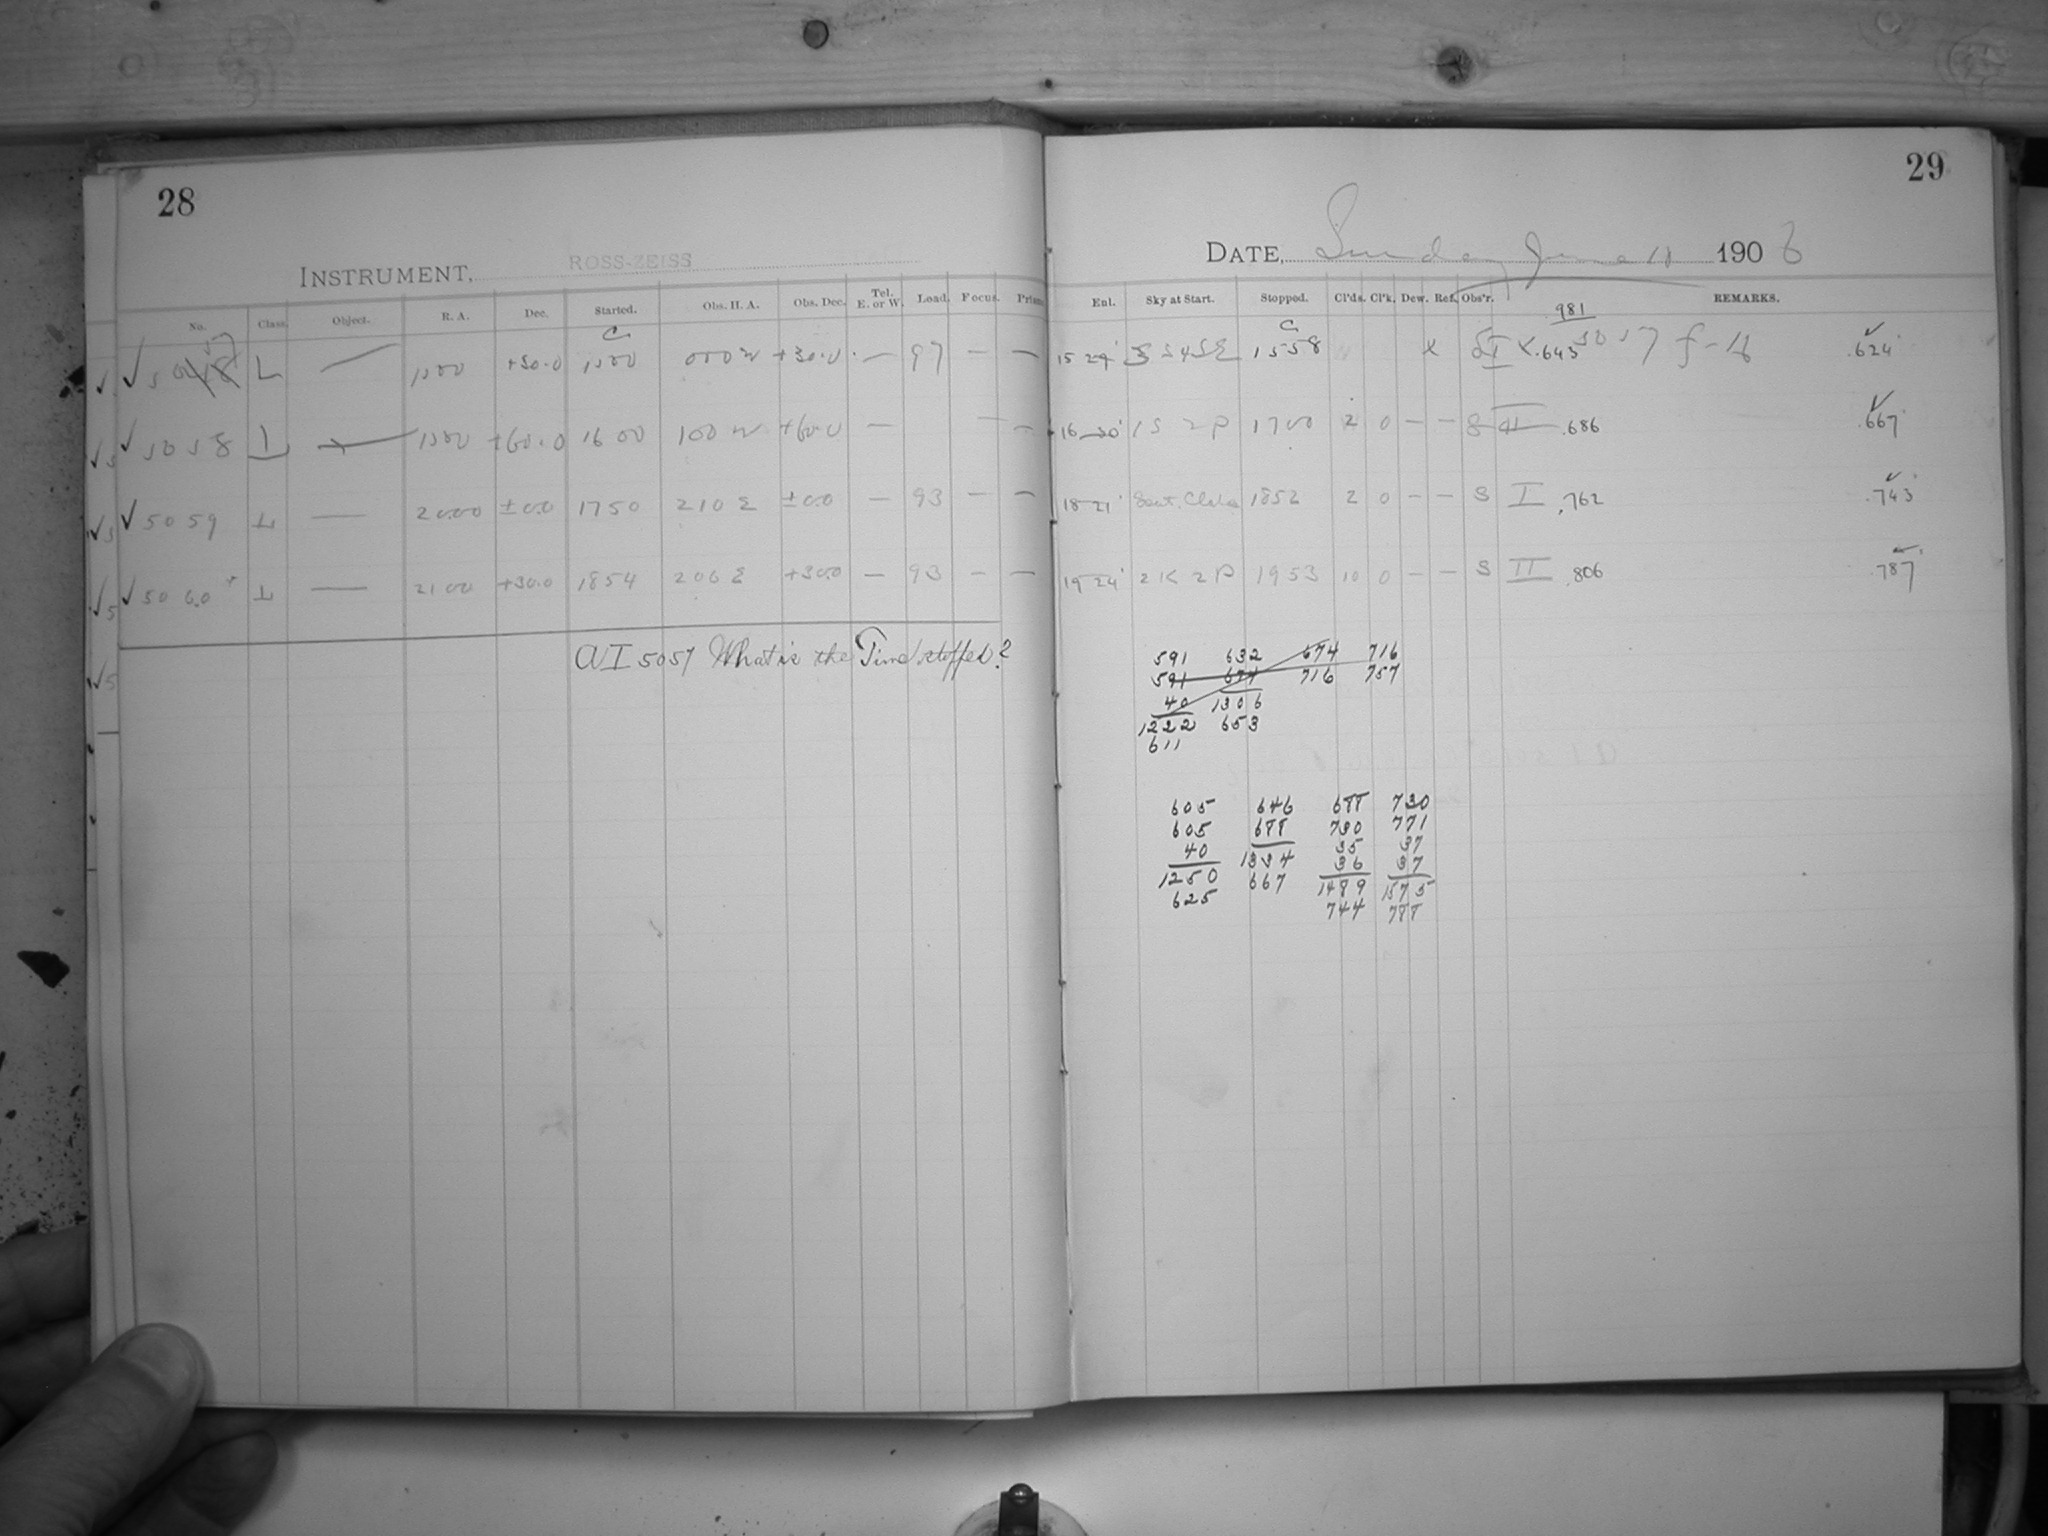 28
INSTRUMENT, ROSS-ZEISS
No. Class. Object. R. A. Dec. Started. Obs. H. A. Obs. Dec. Tel. E. or W. Load. Focus. Prism
57
✓ ✓ 5048 L — 1500 +30.0 C 1500 000 W +30.0 — 97 — —
✓ ✓ 5058 L — 1500 +60.0 1600 100 W +60.0 — —
✓ ✓ 5059 L — 2000 ±0.0 1750 210 E ±0.0 — 93 — —
✓ ✓ 5060 L — 2100 +30.0 1854 206 E +30.0 — 93 — —
AI 5057 What is the Time stopped?
29
DATE, Sunday June 10 1906
Enl. Sky at Start. Stopped. Cl'ds. Cl'k. Dew. Ref. Obs'r. REMARKS.
981
15 29 C 1558 x I .643 5057 ✓ .624
16 30 1S 2P 1700 2 0 — — S II .686 ✓ .667
18 21 Scat. Clds 1852 2 0 — — S I .762 ✓ .743
19 24 2K 2P 1953 10 0 — — S II .806 ✓ .787
591 632 674 716
591 674 716 757
40 1306
1222 653
611
605 646 688 730
605 688 730 771
40 1334 35 37
1250 667 36 37
625 1489 1575
744 788